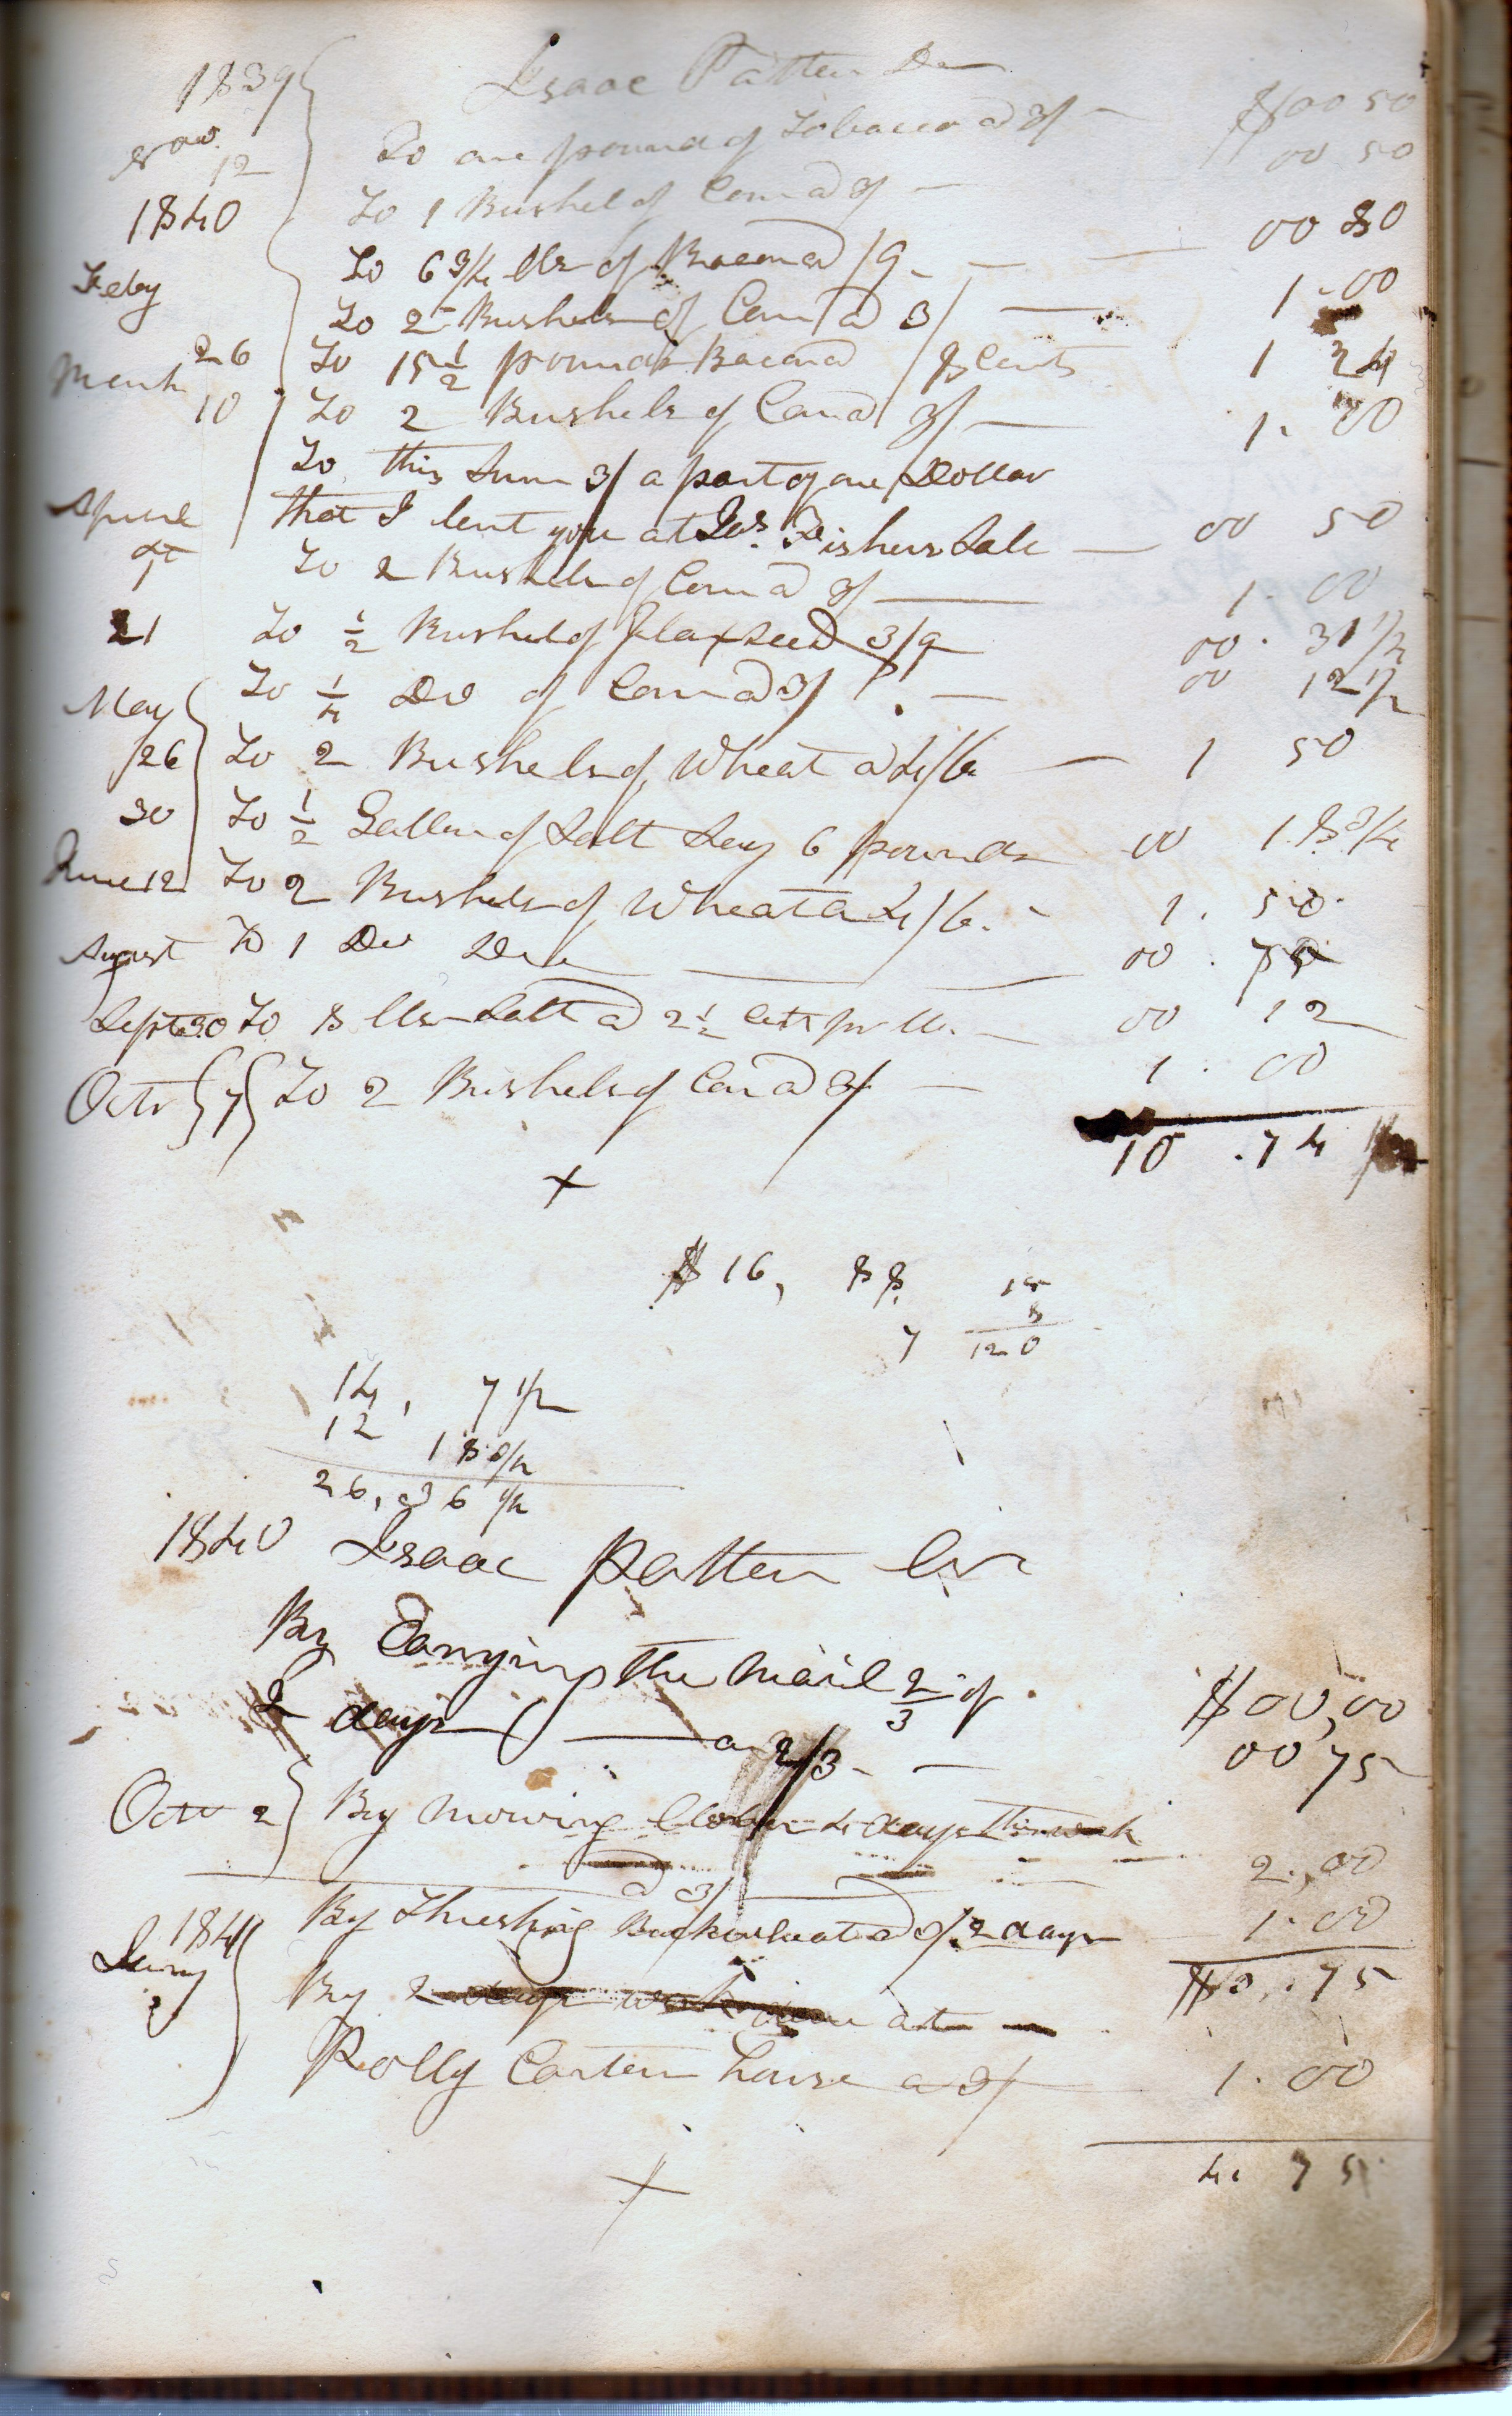 1839 Isaac Patten Dr
Nov. 12 To one pound of Tobacco a 3/ — $00 50
1840 To 1 Bushel of Corn a 3/ — 00 50
Feby To 6 3/4 lbs of Bacon a /9 — 00 80
To 2 Bushels of Corn a 3/ — 1.00
26 To 15 1/2 pounds Bacon a 8 cents 1 24
March 10 To 2 Bushels of Corn a 3/ — 1. 00
To this Sum 3/ a part of one Dollar
that I lent you at Jas. Fishers Sale — 00 50
Aprile To 2 Bushels of Corn a 3/ — 1. 00
21 To 1/2 Bushel of flaxseed 3/9 00. 31 1/4
May To 1/4 Do of Corn a 3/ — 00 12 1/2
26 To 2 Bushels of Wheat a 4/6 — 1 50
30 To 1/2 Gallon of Salt Say 6 pounds 00 18 3/4
June 12 To 2 Bushels of Wheat a 4/6. - 1. 50.
August To 1 Do Do — 00. 75
Sept 30 To 8 lbs Salt a 2 1/2 cets pr lb. — 00 12
Octr 7 To 2 Bushels of Corn a 3/ — 1. 00
10 .74
x
$16, 88 15
8
7 120
14, 7 1/2
12 18 3/4
26,
1840 Isaac Patten Cr
By Carrying the Mail 2/3 of
2 days — a 2/3 — $00,00
00 75
Octr 2 By mowing Clover 4 days this week
a 3/ 2.,00
1841 By Threshing Buckwheat a 3/ 2 days 1. 00
Jany 2 By 2 days work done at — $3,.75
Polly Carten house a 3/ 1. 00
4. 75
x